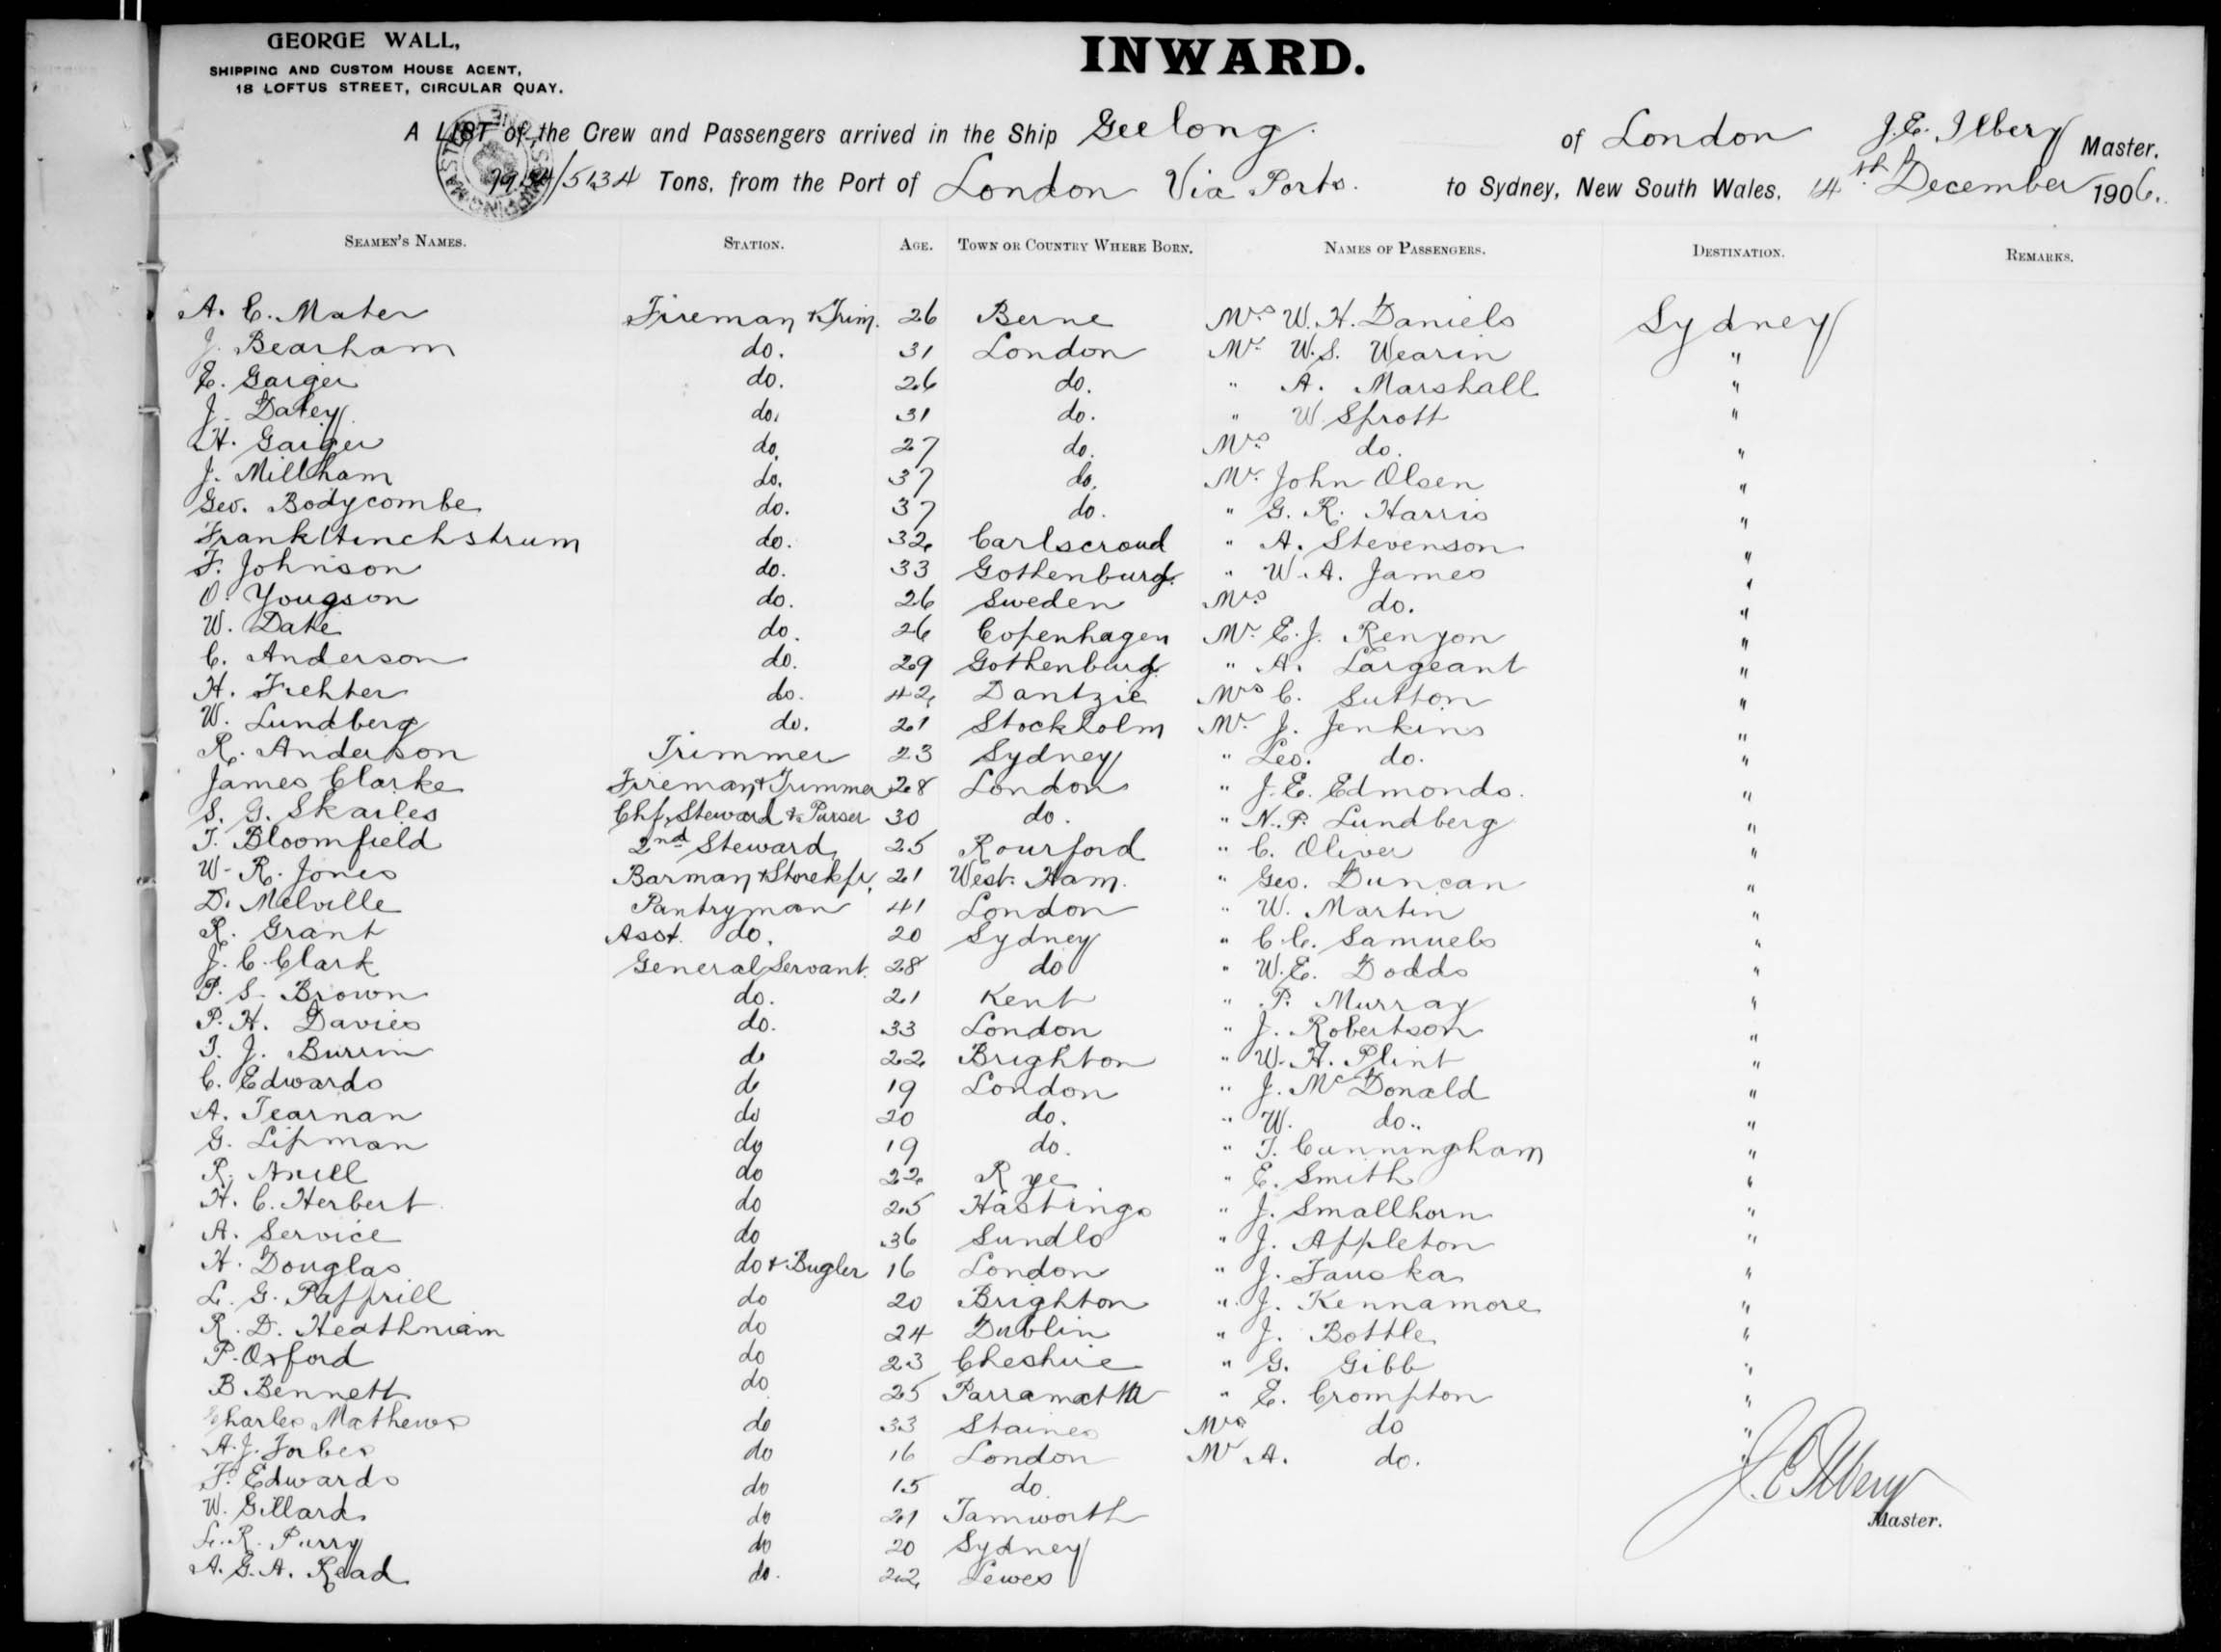 GEORGE WALL,
SHIPPING AND CUSTOM HOUSE AGENT,
18 LOFTUS STREET, CIRCULAR QUAY.
INWARD.
A LIST of the Crew and Passengers arrived in the Ship Geelong. of London J. E. Ilbery Master.
/5134 Tons, from the Port of London Via Ports. to Sydney, New South Wales, 14th December 1906.
SEAMEN'S NAMES. STATION. AGE. TOWN OR COUNTRY WHERE BORN. NAMES OF PASSENGERS. DESTINATION. REMARKS.
A. C. Mater Fireman & Trim. 26 Berne Mrs W. H. Daniels Sydney
J. Bearham do. 31 London Mr. W. S. Wearin "
E. Gaiger do. 26 do. " A. Marshall "
J. Daley do. 31 do. " W. Sprott "
H. Gaiger do. 27 do. Mrs do. "
J. Millham do. 37 do. Mr. John Olsen "
Geo. Bodycombe do. 37 do. " G. R. Harris "
Frank Hinchstrum do. 32 Carlscroud " A. Stevenson "
F. Johnson do. 33 Gothenburg. " W. A. James "
O. Yougson do. 26 Sweden Mrs do. "
W. Date do. 26 Copenhagen Mr. E. J. Renyon "
C. Anderson do. 29 Gothenburg " A. Largeant "
H. Frehter do. 42 Dantzic Mrs C. Sutton "
W. Lundberg do. 21 Stockholm Mr. J. Jenkins "
R. Anderson Trimmer 23 Sydney " Leo. do. "
James Clarke Fireman & Trimmer 28 London " J. E. Edmonds. "
S. G. Skarles Chf. Steward & Purser 30 do. " N. P. Lundberg "
T. Bloomfield 2nd Steward 25 Rourford " C. Oliver "
W. R. Jones Barman & Storekpr. 21 West Ham. " Geo. Duncan "
D. Melville Pantryman 41 London " W. Martin "
R. Grant Asst. do. 20 Sydney " C. C. Samuels "
J. C. Clark General Servant. 28 do " W. E. Dodds "
P. S. Brown do. 21 Kent " P. Murray "
P. H. Davies do. 33 London " J. Robertson "
T. J. Burrin do 22 Brighton " W. H. Plint "
C. Edwards do 19 London " J. McDonald "
A. Tearnan do 20 do. " W. do. "
G. Lipman do 19 do. " T. Cunningham "
R. do 22 Rye " E. Smith "
H. C. Herbert do 25 Hastings " J. Smallhorn "
A. Service do 36 Sundlo " J. Appleton "
H. Douglas do & Bugler 16 London " J. Fauska "
L. G. Papprill do 20 Brighton " J. Kennamore "
R. D. do 24 Dublin " J. Bottle "
P. Oxford do 23 Cheshire " G. Gibb "
B. Bennett do 25 Parramatta " E. Crompton "
Charles Mathews do 33 Staines Mrs do "
A. J. Forbes do 16 London Mr A. do. "
F. Edwards do 15 do
W. Gillard do 21 Tamworth
L. R. Purry do 20 Sydney
A. G. A. Read do. 22 Lewes
J. E. Ilbery
Master.